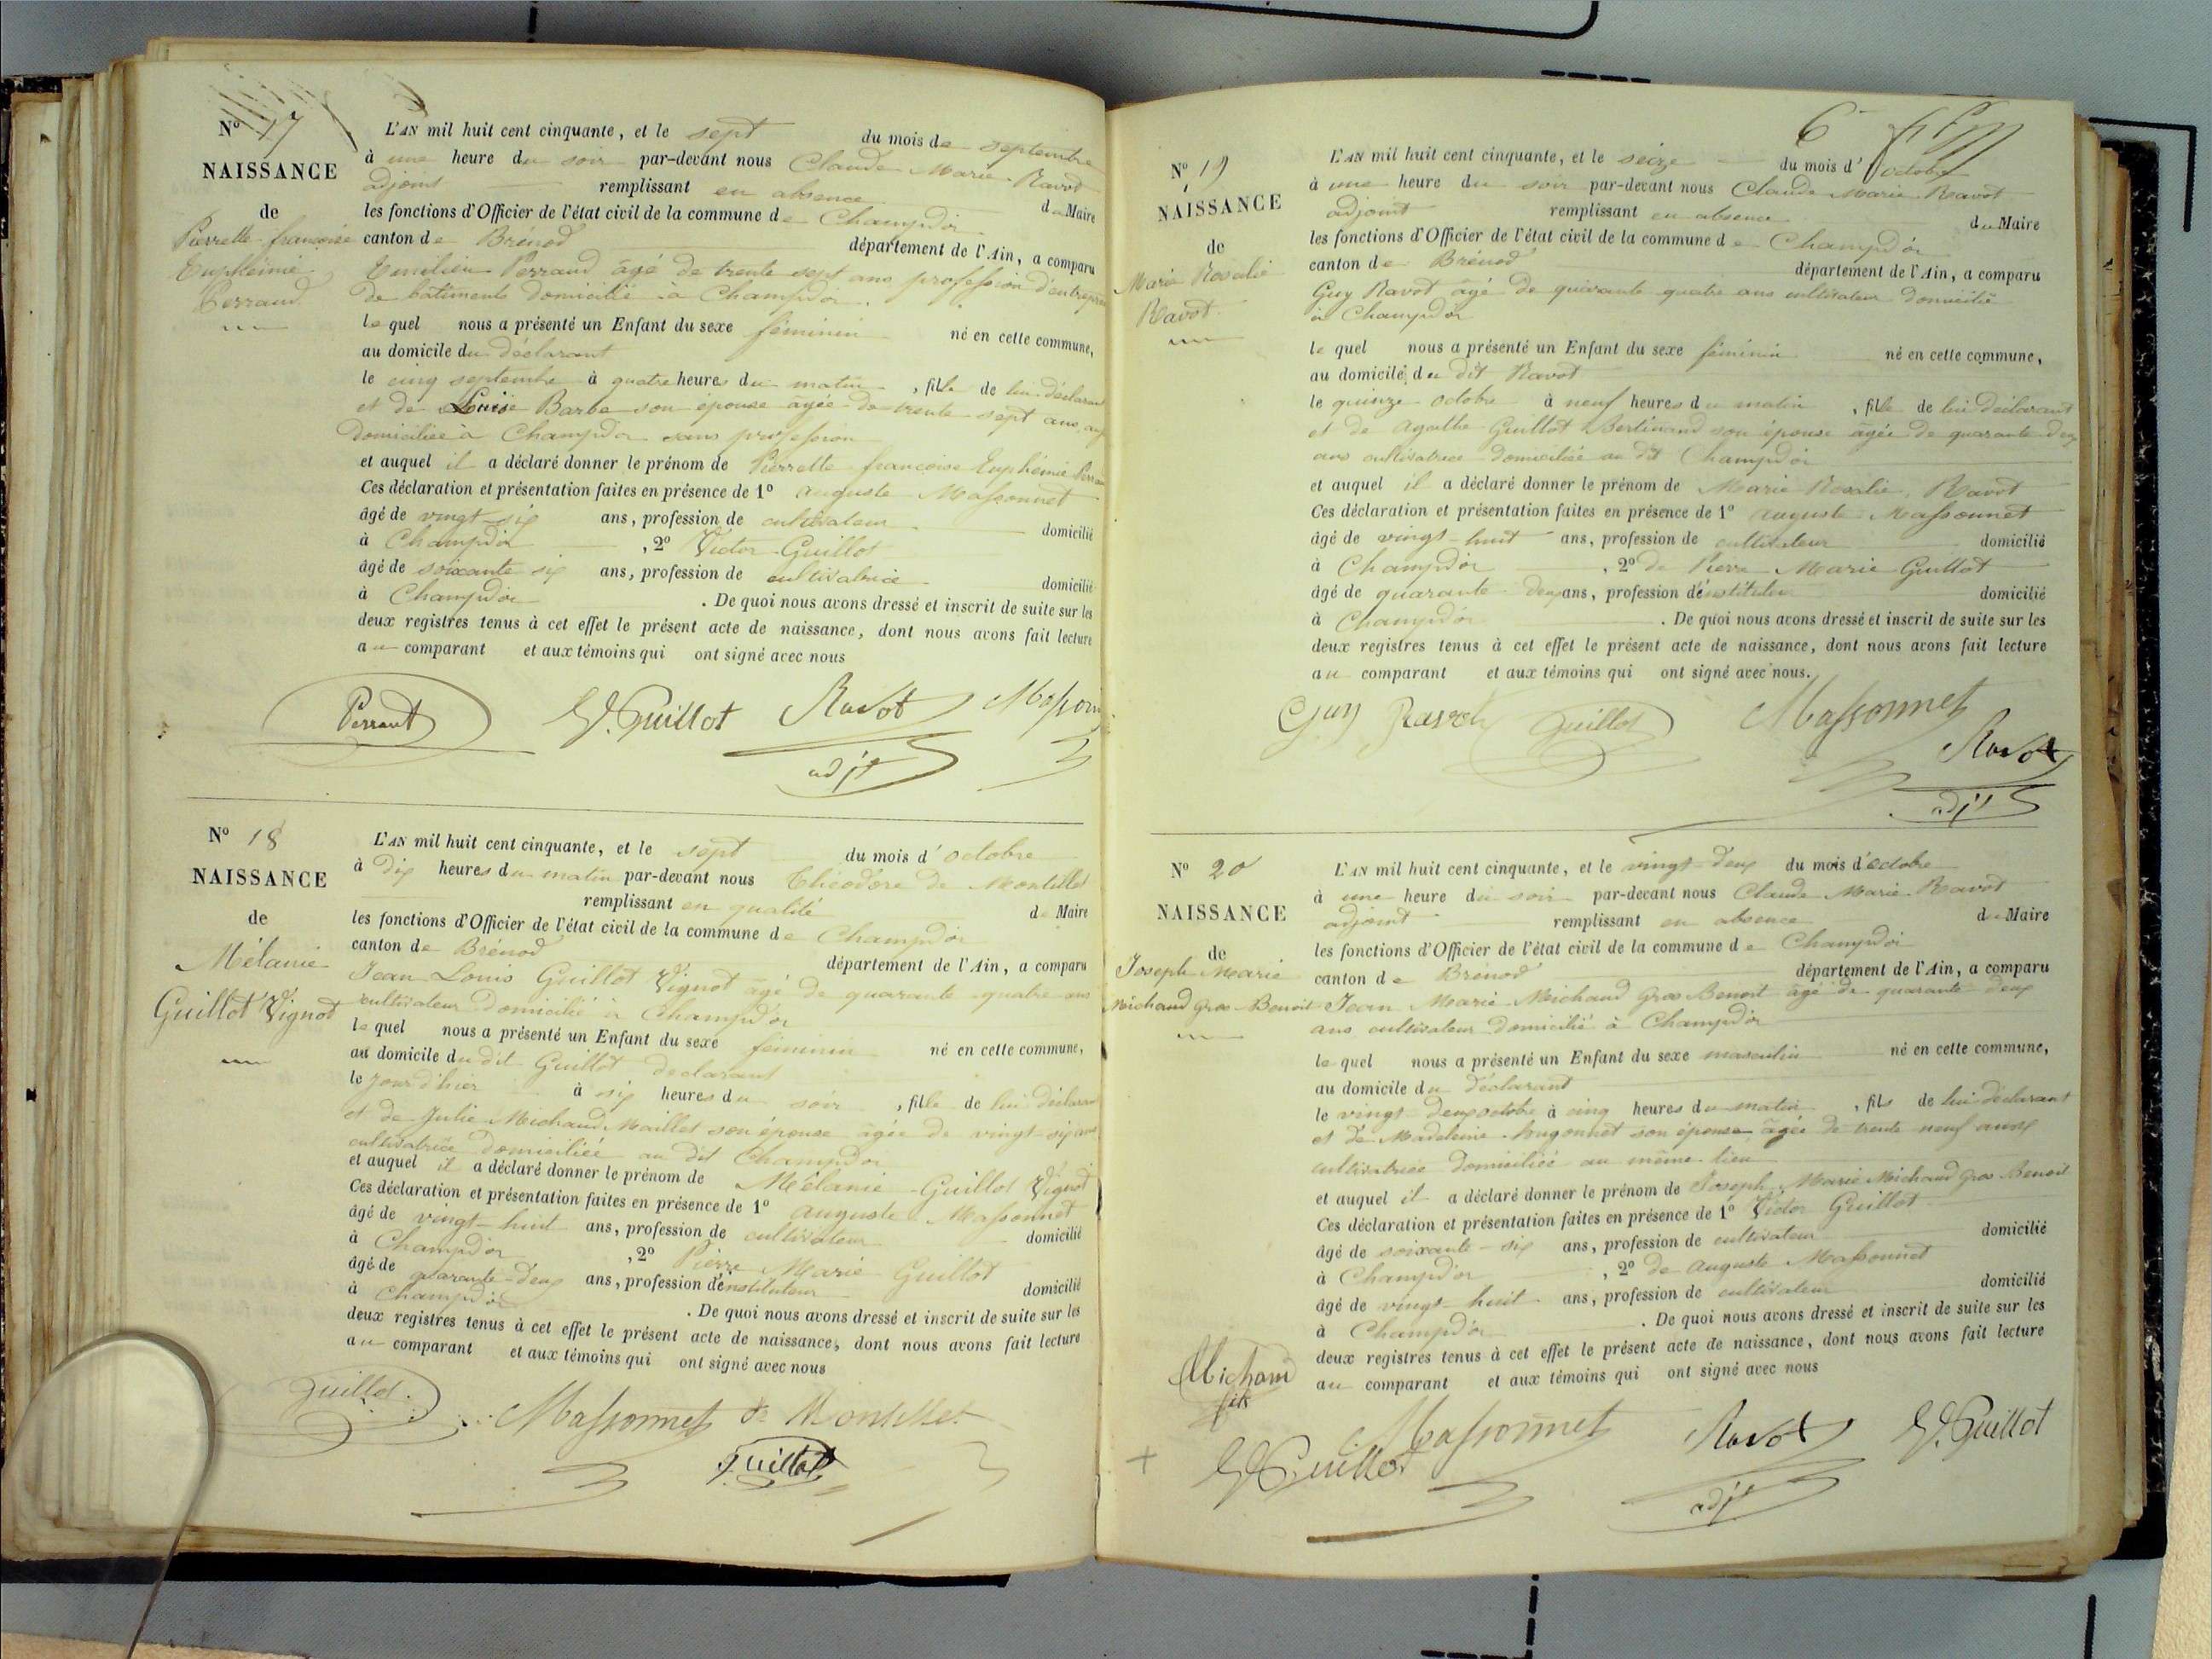 Nº 17
NAISSANCE
de
Pierrette françoise
Euphémie
Perraud
L'AN mil huit cent cinquante, et le sept du mois de septembre
à une heure du soir par-devant nous Claude Marie Ravot
adjoint remplissant en absence du Maire
les fonctions d'Officier de l'état civil de la commune de Champdor
canton de Brénod département de l'Ain, a comparu
Emilien Perraud âgé de trente sept ans profession d'entrepren
de bâtiments domicilié à Champdor
lequel nous a présenté un Enfant du sexe féminin né en cette commune,
au domicile du déclarant
le cinq septembre à quatre heures du matin, fille de lui déclarant
et de Louise Barbe son épouse âgée de trente sept ans
domiciliée à Champdor sans profession
et auquel il a déclaré donner le prénom de Pierrette françoise Euphémie Perrau
Ces déclaration et présentation faites en présence de 1º auguste Massonnet
âgé de vingt-six ans, profession de cultivateur domicilié
à Champdor, 2º Victor Guillot
âgé de soixante six ans, profession de cultivatrice domicilié
à Champdor. De quoi nous avons dressé et inscrit de suite sur les
deux registres tenus à cet effet le présent acte de naissance, dont nous avons fait lecture
au comparant et aux témoins qui ont signé avec nous
Perraut V. Guillot Ravot Masson
adjt
Nº 18
NAISSANCE
de
Mélanie
Guillot Vignot
L'AN mil huit cent cinquante, et le sept du mois d'octobre
à dix heures du matin par-devant nous Théodore de Montillet
remplissant en qualité de Maire
les fonctions d'Officier de l'état civil de la commune de Champdor
canton de Brénod département de l'Ain, a comparu
Jean Louis Guillot Vignot âgé de quarante quatre ans
cultivateur domicilié à Champdor
lequel nous a présenté un Enfant du sexe féminin né en cette commune,
au domicile du dit Guillot declarant
le jour d'hier à six heures du soir, fille de lui déclarant
et de Julie Michaud Maillet son épouse âgée de vingt-six ans
cultivatrice domiciliée au dit Champdor
et auquel il a déclaré donner le prénom de Mélanie Guillot Vignot
Ces déclaration et présentation faites en présence de 1º auguste Massonnet
âgé de vingt-huit ans, profession de cultivateur domicilié
à Champdor, 2º Pierre Marie Guillot
âgé de quarante-deux ans, profession d'instituteur domicilié
à Champdor. De quoi nous avons dressé et inscrit de suite sur les
deux registres tenus à cet effet le présent acte de naissance, dont nous avons fait lecture
au comparant et aux témoins qui ont signé avec nous
Guillot Massonnet de Montillet
Guillot
6
Nº 19
NAISSANCE
de
Marie Rosalie
Ravot
L'AN mil huit cent cinquante, et le seize du mois d'octobre
à une heure du soir par-devant nous Claude Marie Ravot
adjoint remplissant en absence du Maire
les fonctions d'Officier de l'état civil de la commune de Champdor
canton de Brénod département de l'Ain, a comparu
Guy Ravot âgé de quarante quatre ans cultivateur domicilié
à Champdor
lequel nous a présenté un Enfant du sexe féminin né en cette commune,
au domicile du dit Ravot
le quinze octobre à neuf heures du matin, fille de lui déclarant
et de agathe Guillot Bertinand son épouse âgée de quarante deux
ans cultivatrice domiciliée au dit Champdor
et auquel il a déclaré donner le prénom de Marie Rosalie Ravot
Ces déclaration et présentation faites en présence de 1º auguste Massonnet
âgé de vingt-huit ans, profession de cultivateur domicilié
à Champdor, 2º de Pierre Marie Guillot
âgé de quarante deux ans, profession d'instituteur domicilié
à Champdor. De quoi nous avons dressé et inscrit de suite sur les
deux registres tenus à cet effet le présent acte de naissance, dont nous avons fait lecture
au comparant et aux témoins qui ont signé avec nous.
Guy Ravot Guillot Massonnet
Ravot
adjt
Nº 20
NAISSANCE
de
Joseph Marie
Michaud Gros-Benoit
L'AN mil huit cent cinquante, et le vingt-deux du mois d'octobre
à une heure du soir par-devant nous Claude Marie Ravot
adjoint remplissant en absence du Maire
les fonctions d'Officier de l'état civil de la commune de Champdor
canton de Brénod département de l'Ain, a comparu
Jean Marie Michaud Gros Benoit âgé de quarante deux
ans cultivateur domicilié à Champdor
lequel nous a présenté un Enfant du sexe masculin né en cette commune,
au domicile du déclarant
le vingt deux octobre à cinq heures du matin, fils de lui déclarant
et de Madeleine hugonnet son épouse âgée de trente neuf ans
cultivatrice domiciliée au même lieu
et auquel il a déclaré donner le prénom de Joseph Marie Michaud Gros Benoit
Ces déclaration et présentation faites en présence de 1º Victor Guillot
âgé de soixante-six ans, profession de cultivateur domicilié
à Champdor, 2º de auguste Massonnet
âgé de vingt-huit ans, profession de cultivateur domicilié
à Champdor. De quoi nous avons dressé et inscrit de suite sur les
deux registres tenus à cet effet le présent acte de naissance, dont nous avons fait lecture
au comparant et aux témoins qui ont signé avec nous
Michaud
Massonnet Ravot V. Guillot
V. Guillot
adjt